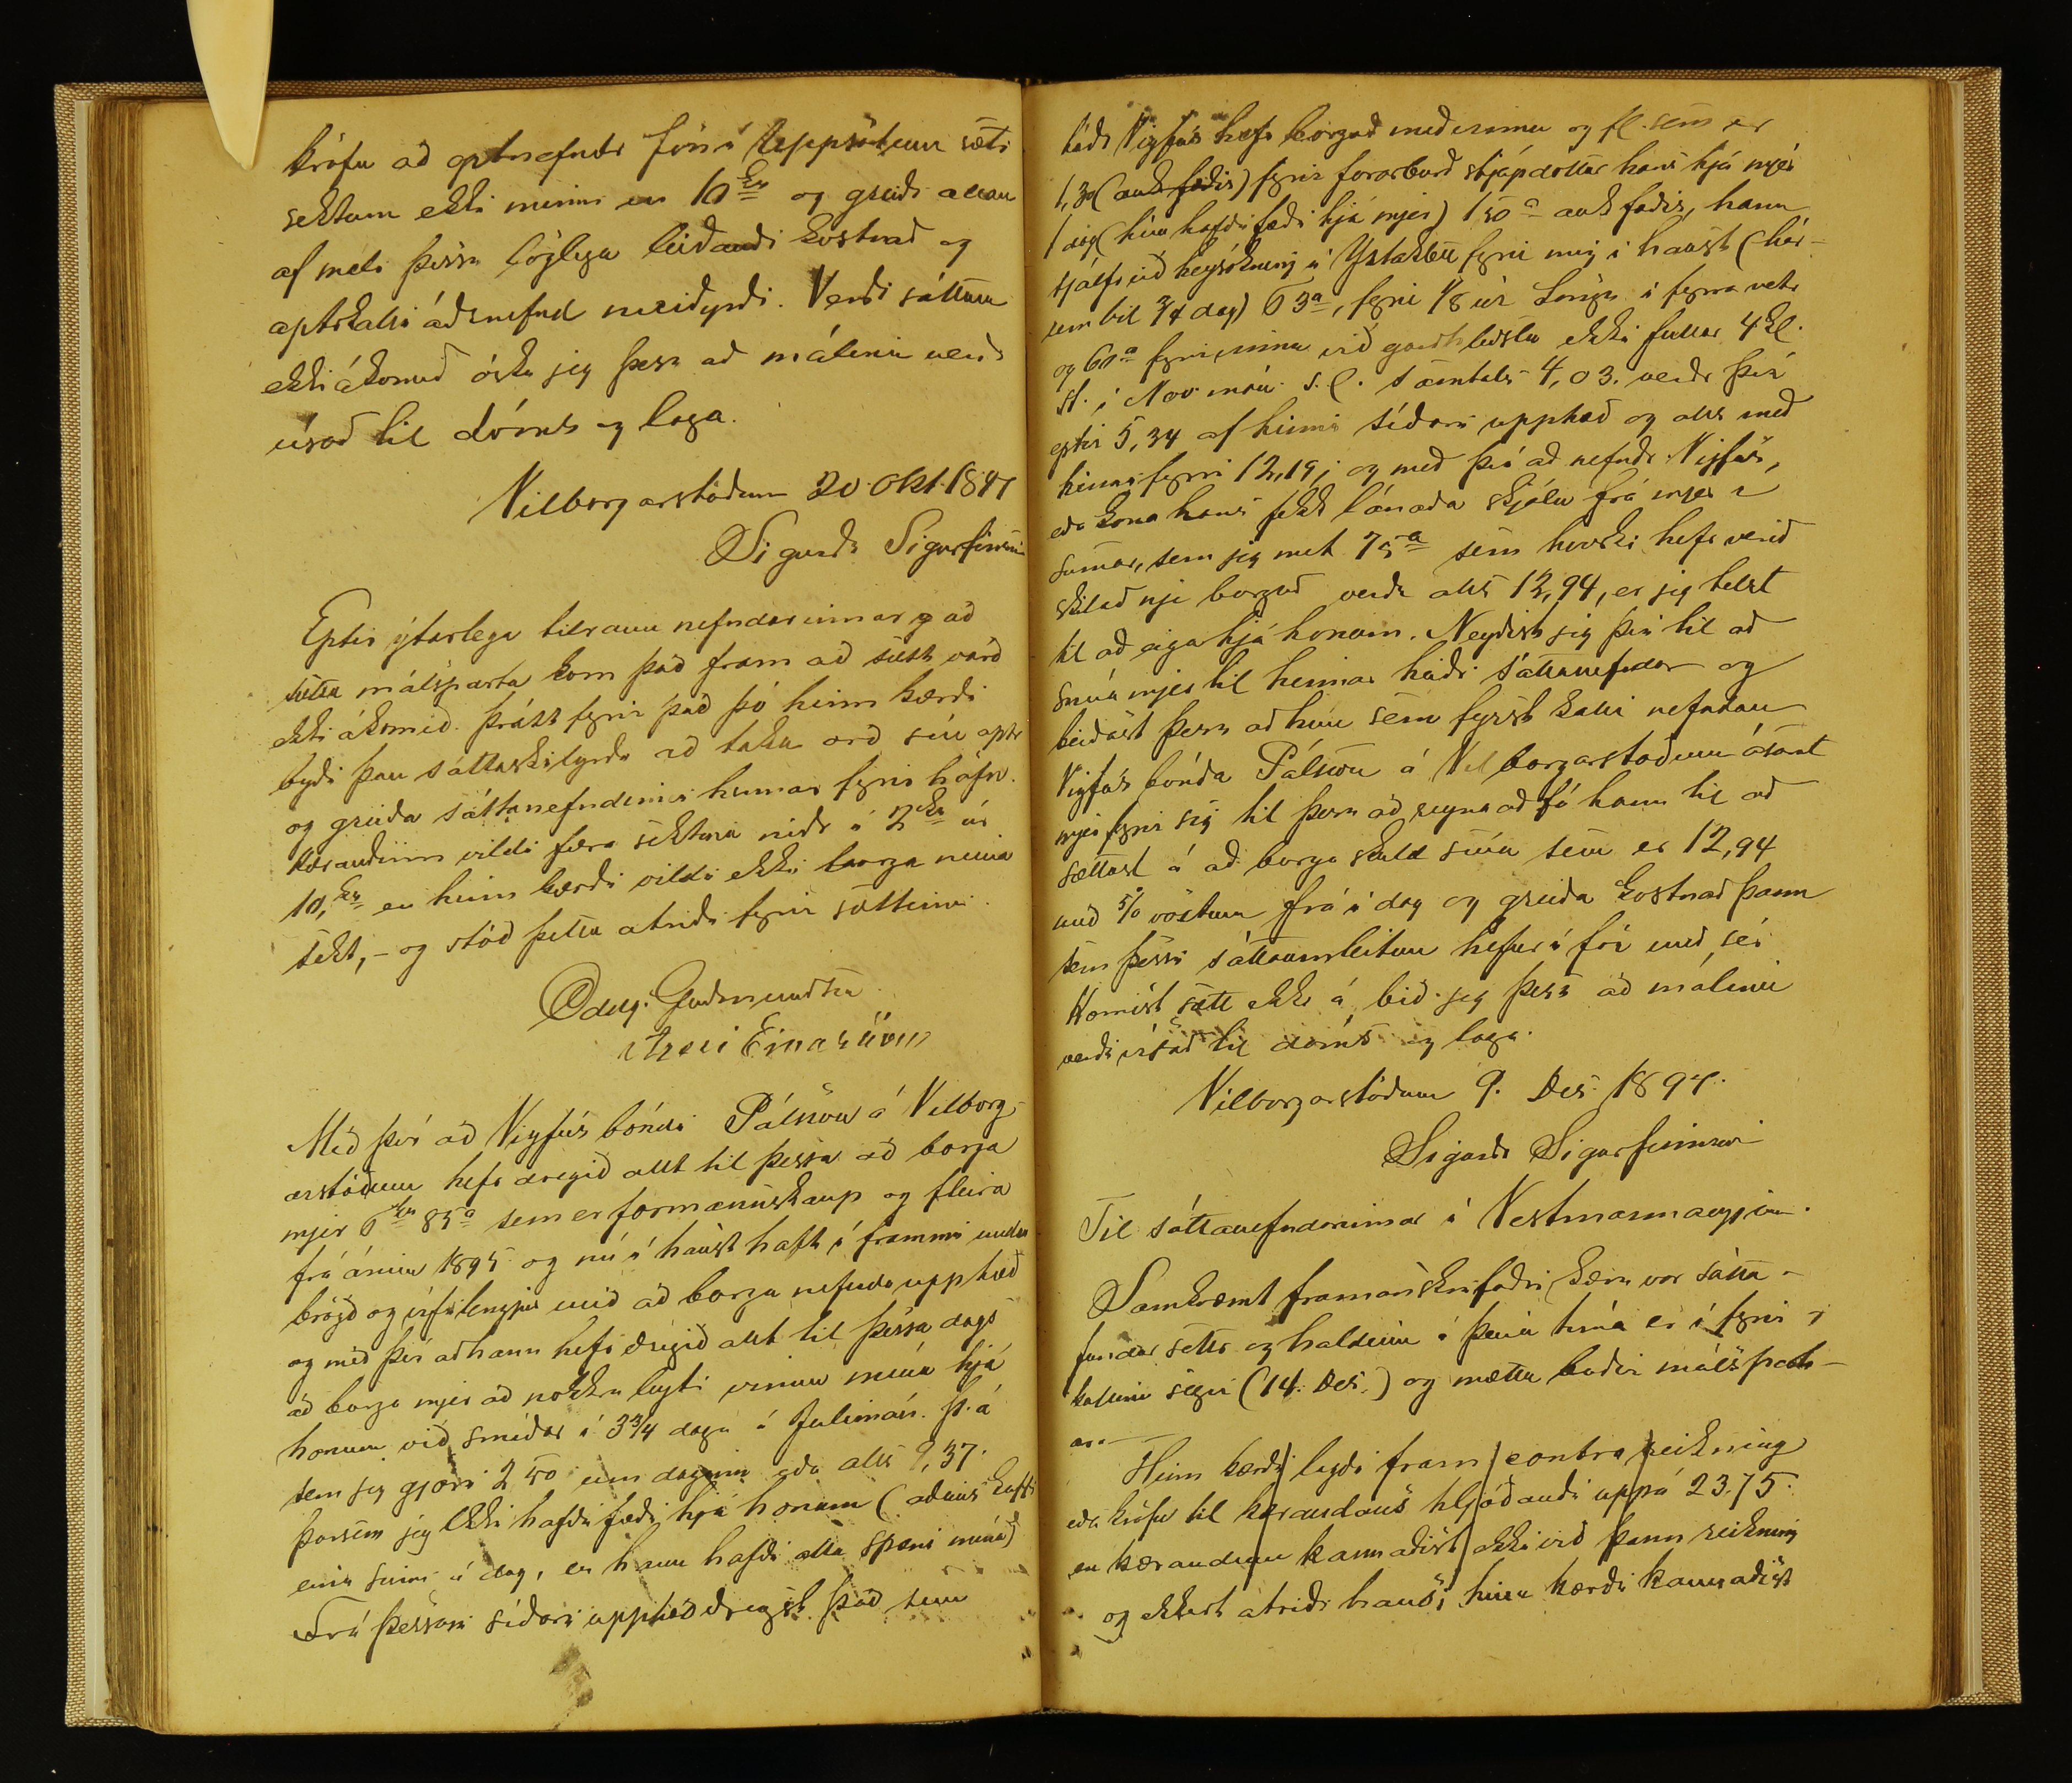 kröfu að optnefndr Jón á Uppsölum sæti
sektum ekki minni en 10 kr og greiði allan
af máli þessu löglega leiðandi kostnað og
aptrkalli áðrnefnd meiðyrði. Verði sáttum
ekki ákomið óska jeg þess að málinu verði
vísað til dóms og laga.
Vilborgarstöðum 20. Okt. 1897
Sigurðr Sigurfinnsson
Eptir ýtarlega tilraun nefndarinnar og að
málsparta kom það fram að sætt varð
ekki ákomið. þrátt fyrir það þó hinn kærði
byði þau sáttaskilyrði að taka orð sín aptr
og greiða sáttanefndinni hennar fyrir höfn.
Kærandinn vildi færa sektina niðr í 2 kr úr
10, kr en hinn kærði vildi ekki borga neina
sekt, - og stóð þetta atriði fyrir sáttinni.
Oddg. Guðmundsen
Árni Einarsson
Með því að Vigfús bóndi Pálsson á Vilborg-
arstöðum hefr dregið allt til þessa að borga
mjer 6 kr 85 a sem er formannskaup og fleira
frá árinu 1895 og nú í haust haft í frammi undan
brögð og vífilengjur með að borga nefnda upphæð
og með því að hann hefr dregið allt til þessa dags
að borga mjer að nokkru leyti vinnu mína hjá
honum við smíðar í 3 3/4 daga í Júlímán. þ. á
sem jeg gjöri 2 50 um daginn eða alls 9,37.
þarsem jeg ekki hafði fæði hjá honum (aðeins kaffi
einu sinni á dag, en hann hafði alla spæni mína)
Frá þessari síðari upphæð dregst það sem
téðr Vigfús hefr borgað með vinnu og fl. sem er
1,30 (auk fæðis) fyrir stjúpdóttur hans hjá mjer
1 dag (hún hafði fæði hjá mjer) 1 50 a auk fæðis, hann
sjálfr við heysókning í Ystaklett fyrir mig í haust (hér-
um bil 3/4 dag) 63 a, fyrir 1/8 úr Löngu í fyrra vetr
og 60 a fyrir vinnu við garðhleðslu ekki fullar 4 kl.
st. í Nov. mán. s. l. samtals 4,03. verðr því
eptir 5,34 af hinni síðari upphæð og alls með
hinni fyrri 12,19; og með því að nefndr Vigfús,
eða kona hans fekk lánaða skjólu frá mjer í
sumar, sem jeg met 75 a sem hvorki hefr verið
skilað nje borguð verða alls 12,94, er jeg telst
til að eiga hjá honum. Neyðist jeg því til að
snúa mjer til hennar háðu sáttanefndar og
beiðast þess að hún sem fyrst kalli nefndan
Vigfús bónda Pálsson á Vilborgarstöðum ásamt
mjer fyrir sig til þess að reyna að fá hann til að
sættast á að borga skuld sína sem er 12,94
með 5% vöxtum frá í dag og greiða kostnað þann
sem þessi sáttaumleitun hefur í för með sér
Komist sætt ekki á bið jeg þess að málinu
verði vísað til dóms og laga.
Vilborgarstöðum 9. Des. 1897.
Sigurðr Sigurfinnsson
Til sáttanefndarinnar í Vestmannaeyjum.
Samkvæmt framanskrifaðri kæru var sátta-
fundur settr og haldinn á þeim tíma er í fyrir-
kallinu segir (14. Des.) og mættu báðir málspart-
ar.
Hinn kærði lagði fram contra reikning
eða kröfu til kærandans hljóðandi uppá 23.75.
en kærandinn kannaðist ekki við þann reikning
og ekkert atriði hans; hinn kærði kannaðist